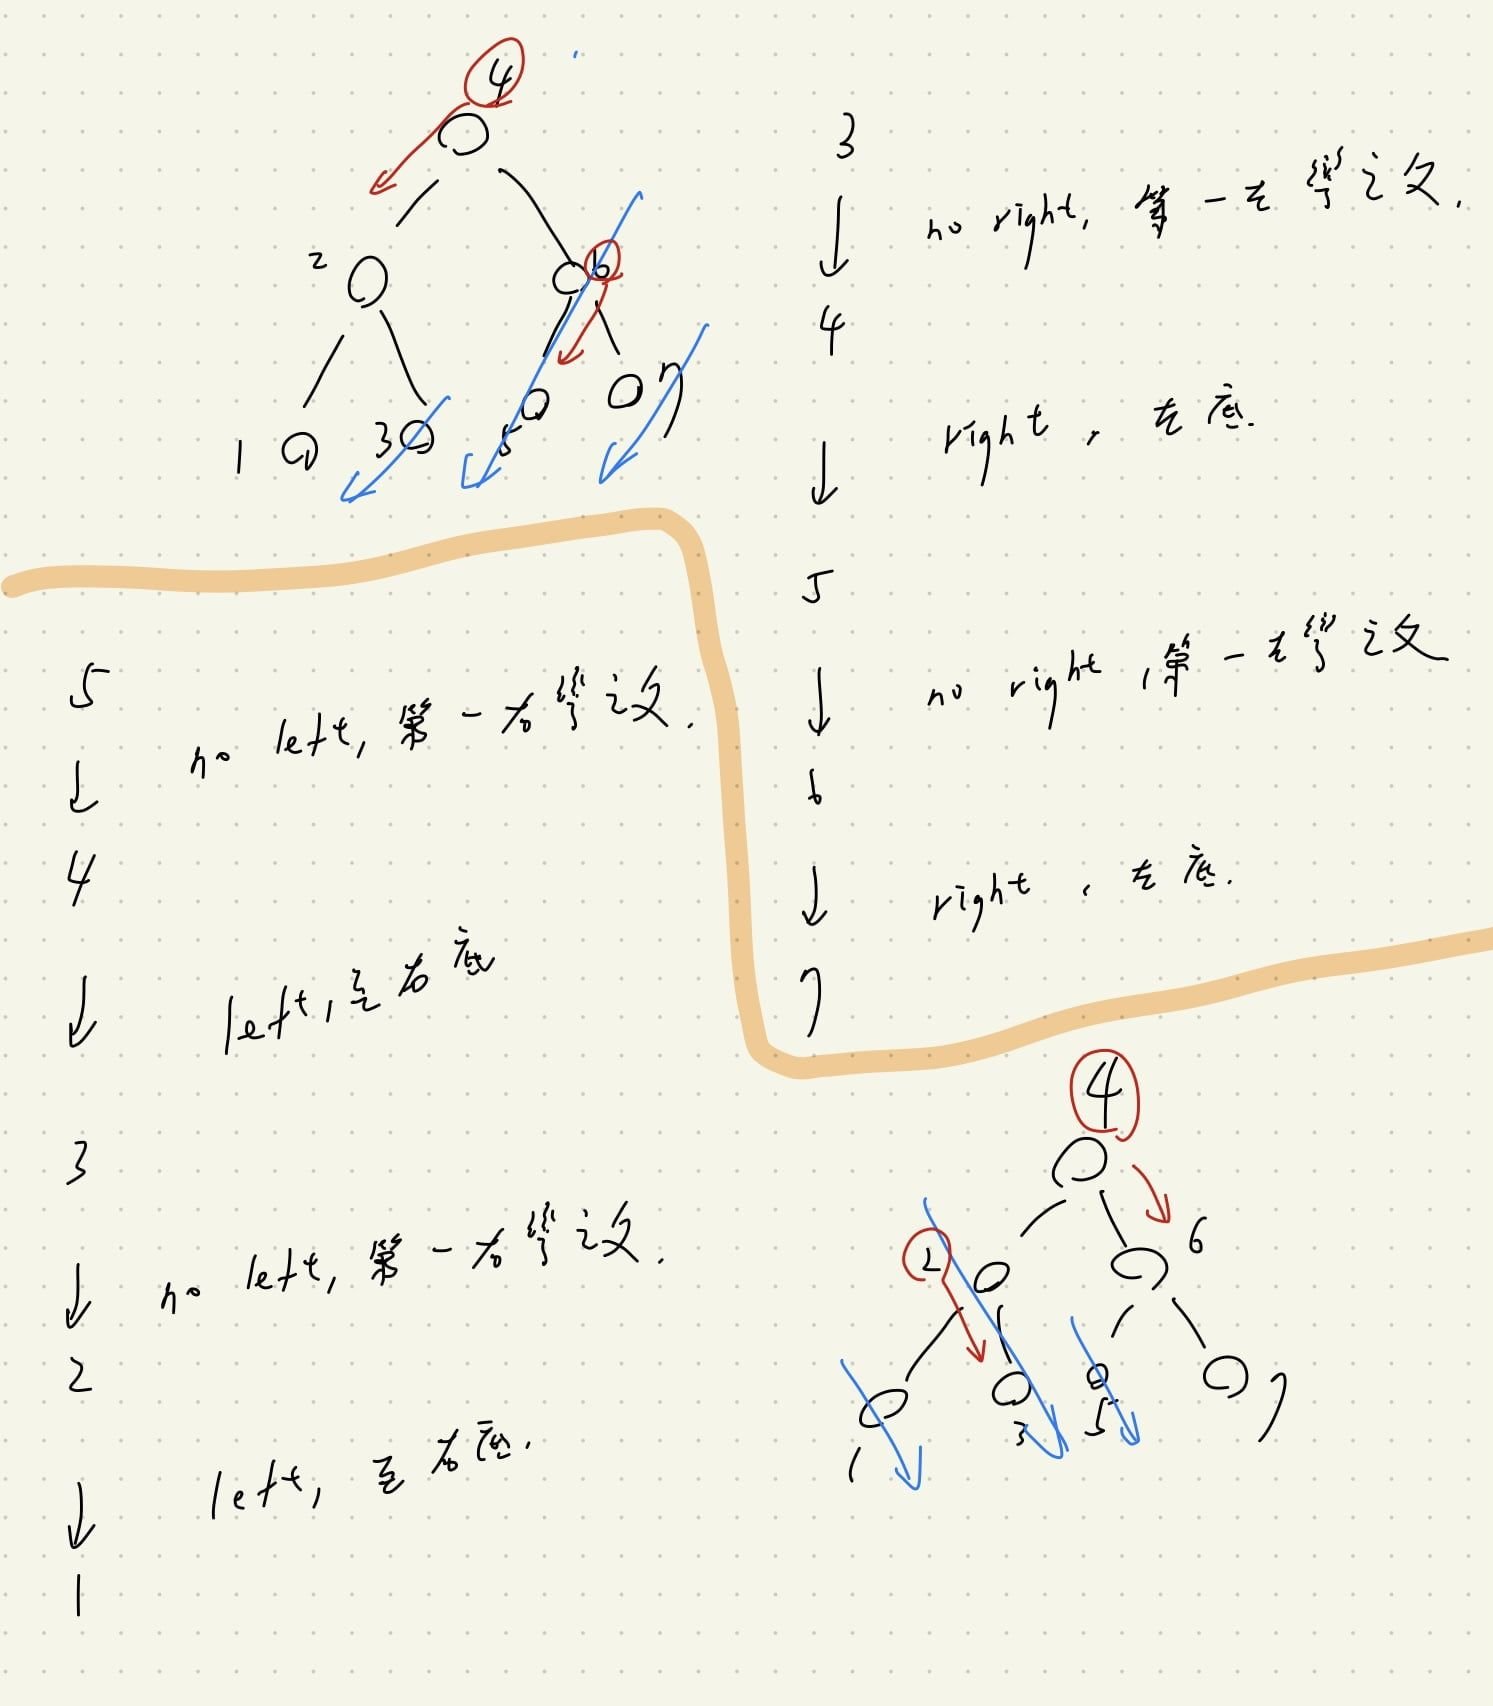 4
2 6
1 3 5 7
3
no right, 第一左 之父.
4
right, 左底.
5
no right, 第一左 之父
6
right, 左底.
7
5
no left, 第一右 之父.
4
left, 至右底
3
no left, 第一右 之父.
2
left, 至右底.
1
4
2 6
1 3 5 7